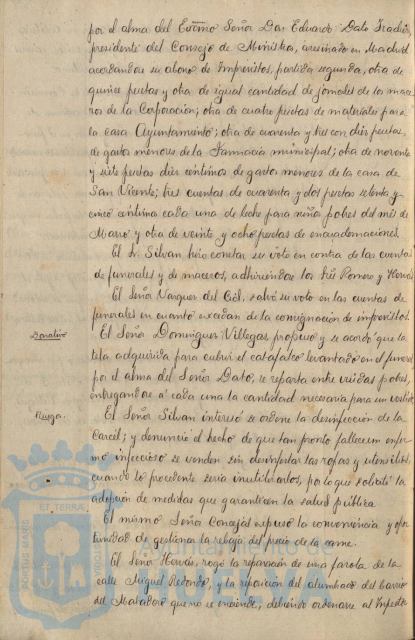 por el alma del Excmo Señor Don Eduardo Dato Iradier,
presidente del Consejo de Ministros, asesinado en Madrid
acordándose su abono de Imprevistos, partida segunda, otra de
quince pesetas y otra de igual cantidad de jornales de los mace-
ros de la Corporación; otra de cuatro pesetas de materiales para
la casa Ayuntamiento; otra de cuarenta y tres con diez pesetas,
de gastos menores de la Farmacia municipal; otra de noventa
y siete pesetas diez céntimos de gastos menores de la casa de
San Vicente; tres cuentas de cuarenta y dos pesetas setenta y
cinco céntimos cada una de leche para niños pobres del mes de
Marzo y otra de veinte y ocho pesetas de encuadernaciones.
El Sr. Silvan hizo constar su voto en contra de las cuentas
de funerales y de maceros, adhiriéndose los Sres Romero y Hervás
El Señor Vazquez del Cid, salvó su voto en las cuentas de
funerales en cuanto excedan de la consignación de imprevistos.
Donativo
El Señor Dominguez Villegas propuso y se acordó que la
tela adquirida para cubrir el catafalco levantado en el funeral
por el alma del Señor Dato, se reparta entre viudas pobres,
entregándose a cada una la cantidad necesaria para un vestido
Ruego.
El Señor Silvan interesó se ordene la desinfección de la
Carcel; y denunció el hecho de que tan pronto fallecen enfer-
mos infecciosos se venden sin desinfectar las ropas y utensilios,
cuando lo procedente seria inutilizarlos, por lo que solicitó la
adopción de medidas que garanticen la salud pública
El mismo Señor Concejal expuso la conveniencia y opor-
tunidad de gestionar la rebaja del precio de la carne.
El Señor Hervás, rogó la reparación de una farola de la
calle Miguel Redondo, y la reposición del alumbrado del barrio
del Matadero que no se enciende, debiendo ordenarse al Inspector
PORTUS MARIS
ET TERRAE
CUSTODIA
Ayuntamiento de
HUELVA